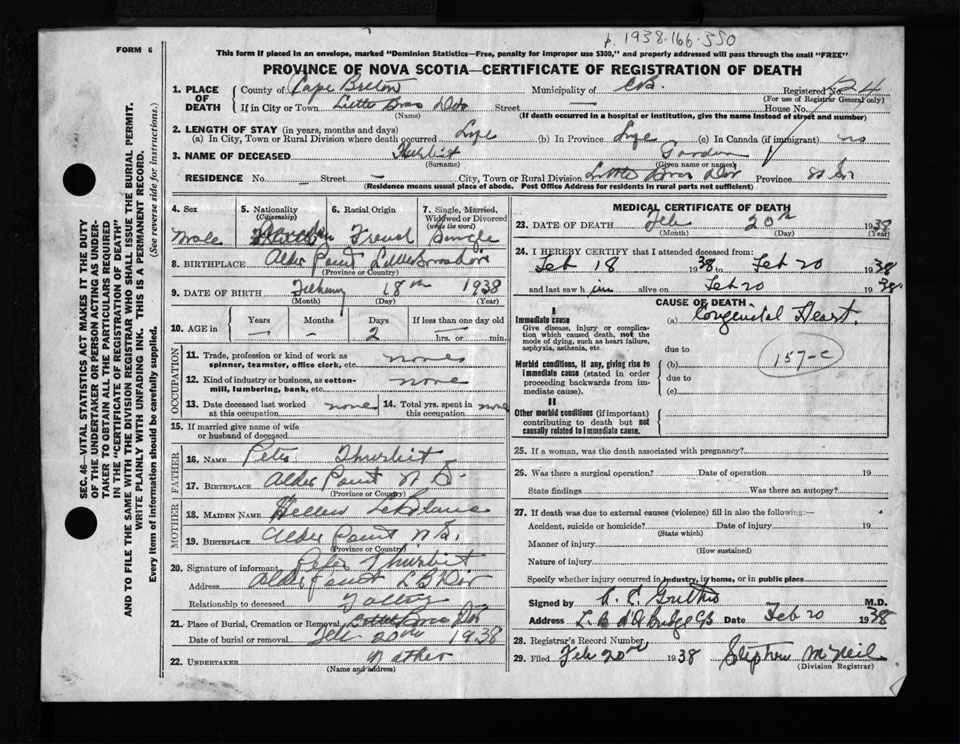 p. 1938-166-550
FORM 6
This form If placed in an envelope, marked "Dominion Statistics—Free, penalty for improper use $300," and properly addressed will pass through the mail "FREE"
PROVINCE OF NOVA SCOTIA—CERTIFICATE OF REGISTRATION OF DEATH
1. PLACE OF DEATH
County of Cape Breton Municipality of C.B. Registered No. 24
(For use of Registrar General only)
If in City or Town Little Bras Dor Street — House No.
(Name) (If death occurred in a hospital or institution, give the name instead of street and number)
2. LENGTH OF STAY (in years, months and days)
(a) In City, Town or Rural Division where death occurred Life (b) In Province Life (c) In Canada (if immigrant) no
3. NAME OF DECEASED Thurbit Gordon
(Surname) (Given name or names)
RESIDENCE No. — Street — City, Town or Rural Division Little Bras Dor Province
(Residence means usual place of abode. Post Office Address for residents in rural parts not sufficient)
SEC. 46—VITAL STATISTICS ACT MAKES IT THE DUTY
OF THE UNDERTAKER OR PERSON ACTING AS UNDER-
TAKER TO OBTAIN ALL THE PARTICULARS REQUIRED
IN THE "CERTIFICATE OF REGISTRATION OF DEATH"
AND TO FILE THE SAME WITH THE DIVISION REGISTRAR WHO SHALL ISSUE THE BURIAL PERMIT.
WRITE PLAINLY WITH UNFADING INK. THIS IS A PERMANENT RECORD.
Every item of information should be carefully supplied. (See reverse side for instructions.)
4. Sex
Male
5. Nationality
(Citizenship)
6. Racial Origin
French
7. Single, Married, Widowed or Divorced
(write the word)
Single
8. BIRTHPLACE Alder Point Little Bras Dor
(Province or Country)
9. DATE OF BIRTH February 18th 1938
(Month) (Day) (Year)
10. AGE in Years Months Days If less than one day old
— — 2 hrs. or min.
OCCUPATION
11. Trade, profession or kind of work as spinner, teamster, office clerk, etc. none
12. Kind of industry or business, as cotton-mill, lumbering, bank, etc. none
13. Date deceased last worked at this occupation none
14. Total yrs. spent in this occupation none
15. If married give name of wife or husband of deceased
FATHER
16. NAME Peter Thurbit
17. BIRTHPLACE Alder Point N S.
(Province or Country)
MOTHER
18. MAIDEN NAME Hellen LeBlanc
19. BIRTHPLACE Alder Point N.S.
(Province or Country)
20. Signature of informant Peter Thurbit
Address Alder Point L B Dor
Relationship to deceased Father
21. Place of Burial, Cremation or Removal Little Bras Dor
Date of burial or removal Feb. 20th 1938
22. UNDERTAKER Father
(Name and address)
MEDICAL CERTIFICATE OF DEATH
23. DATE OF DEATH Feb 20th 1938
(Month) (Day) (Year)
24. I HEREBY CERTIFY that I attended deceased from:
Feb 18 1938 to Feb 20 1938
and last saw him alive on Feb 20 1938.
CAUSE OF DEATH
I
Immediate cause
Give disease, injury or complication which caused death, not the mode of dying, such as heart failure, asphyxia, asthenia, etc.
(a) Congenital Heart.
due to
157-c
Morbid conditions, if any, giving rise to immediate cause (stated in order proceeding backwards from immediate cause).
(b)
due to
(c)
II
Other morbid conditions (if important) contributing to death but not causally related to immediate cause.
25. If a woman, was the death associated with pregnancy?
26. Was there a surgical operation? Date of operation 19
State findings Was there an autopsy?
27. If death was due to external causes (violence) fill in also the following:—
Accident, suicide or homicide? Date of injury 19
(State which)
Manner of injury
(How sustained)
Nature of injury
Specify whether injury occurred in industry, in home, or in public place
Signed by M.D.
Address Date Feb 20 1938
28. Registrar's Record Number
29. Filed Feb 20th 1938 Stephen McNeil
(Division Registrar)